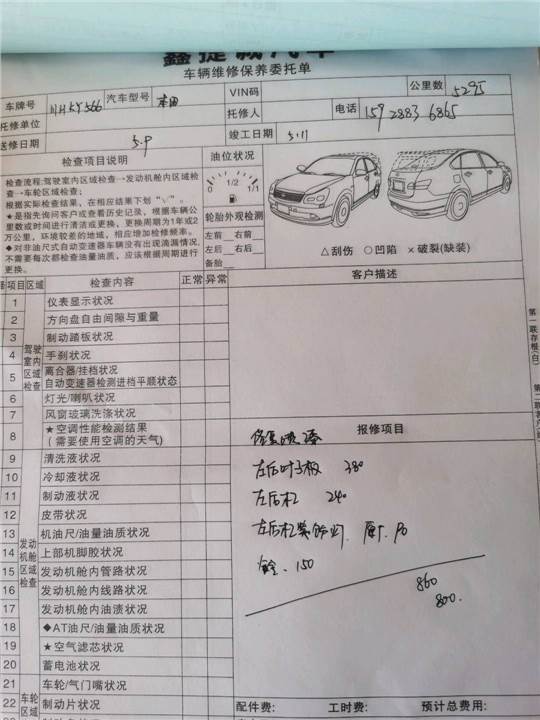 鑫捷诚汽车
车辆维修保养委托单
车牌号 汽车型号 本田 VIN码 公里数 5295
托修单位 托修人 电话 159 2883 6865
送修日期 5.9 竣工日期 5.11
检查项目说明 油位状况
检查流程:驾驶室内区域检查→发动机舱内区域检查→车轮区域检查;
根据实际检查结果,在相应结果下划“√”。
★是指先询问客户或查看历史记录,根据车辆公里数或时间进行清洁或更换,更换周期为1年或2万公里,环境较差的地域,相应增加检修频率。
◆对非油尺式自动变速器车辆没有出现滴漏情况,不需要每次都检查油量油质,应该根据周期进行更换。
0 1/2 1/1
轮胎外观检测
左前 右前
左后 右后
备胎
△刮伤 ○凹陷 ×破裂(缺装)
项目 区域 检查内容 正常 异常 客户描述
驾驶室内区域检查
1 仪表显示状况
2 方向盘自由间隙与重量
3 制动踏板状况
4 手刹状况
5 离合器/挂档状况
自动变速器检测进档平顺状态
6 灯光/喇叭状况
7 风窗玻璃洗涤状况
8 ★空调性能检测结果
(需要使用空调的天气)
报修项目
发动机舱区域检查
9 清洗液状况
10 冷却液状况
11 制动液状况
12 皮带状况
13 机油尺/油量油质状况
14 上部机脚胶状况
15 发动机舱内管路状况
16 发动机舱内线路状况
17 发动机舱内油渍状况
18 ◆AT油尺/油量油质状况
19 ★空气滤芯状况
20 蓄电池状况
车轮区域
21 车轮/气门嘴状况
22 制动片状况
左后叶子板 380
左后杠 240
左后杠
150
860
800.
配件费: 工时费: 预计总费用:
第一联存根(白)